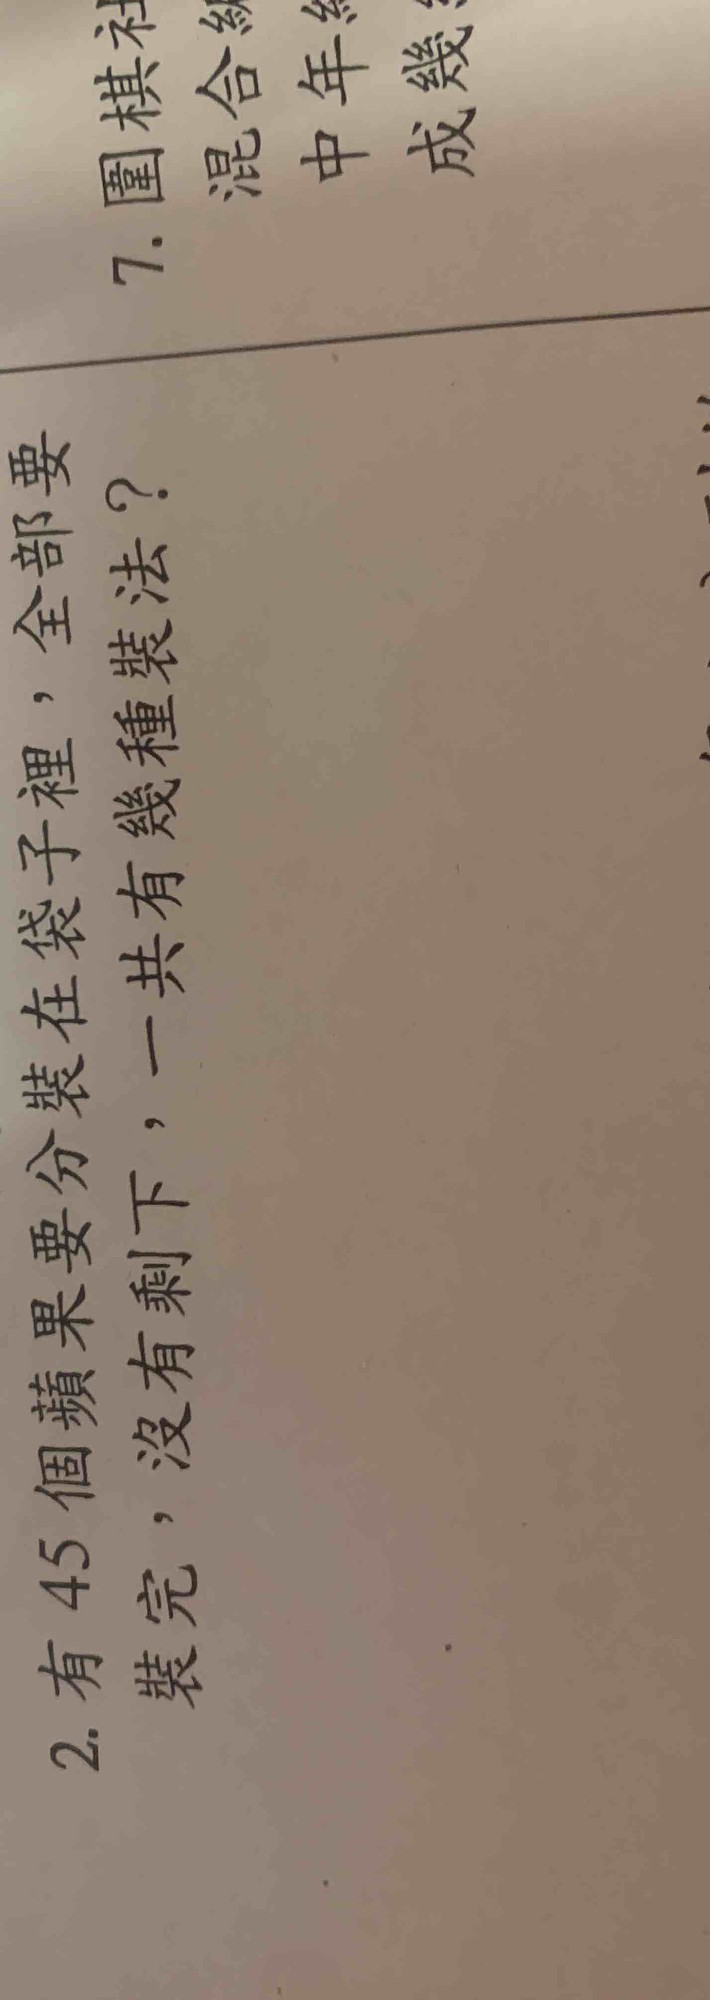 2. 有 45 個蘋果要分裝在袋子裡，全部要
裝完，沒有剩下，一共有幾種裝法？
7. 圍棋社
混合
中年
成幾